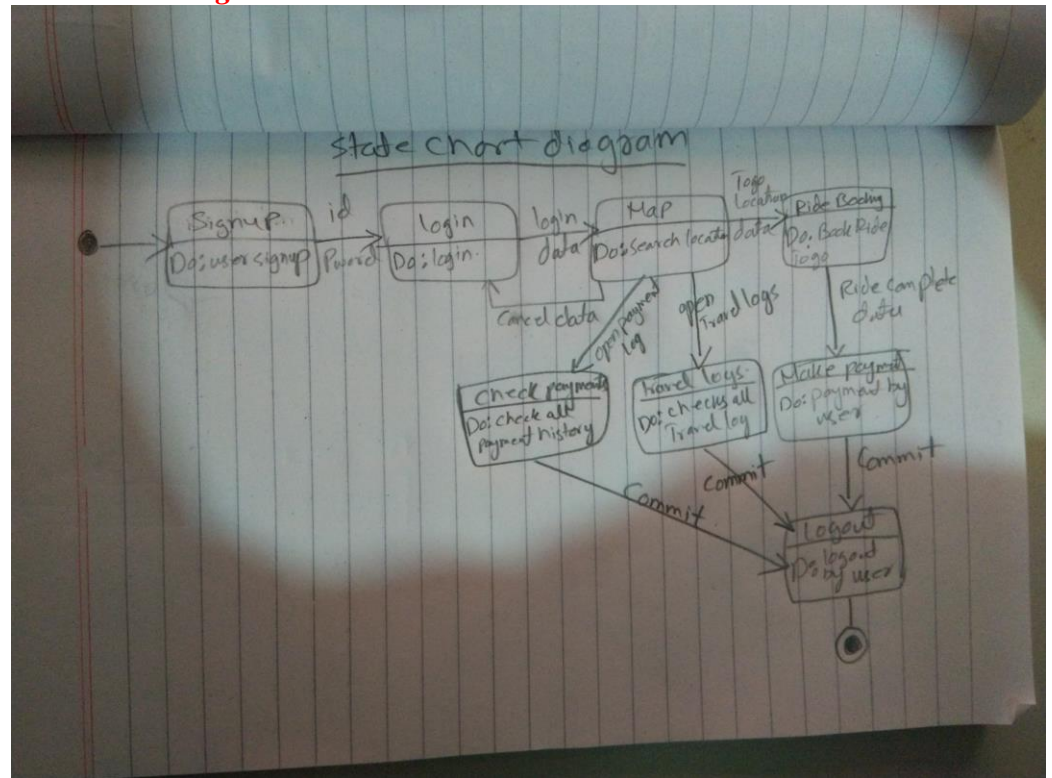 State chart diagram
Signup
Do: user signup
id
login
Do: login
login
data
Map
Do: Search locatio
Togo
Location
data
Ride Booking
Do: Book Ride
Togo
Cancel data
open payment
log
open
Travel logs
Ride Complete
data
Check payments
Do: check all
payment history
Travel logs
Do: checks all
Travel log
Make payment
Do: payment by
user
Commit
Commit
Commit
Logout
Do: logout
by user